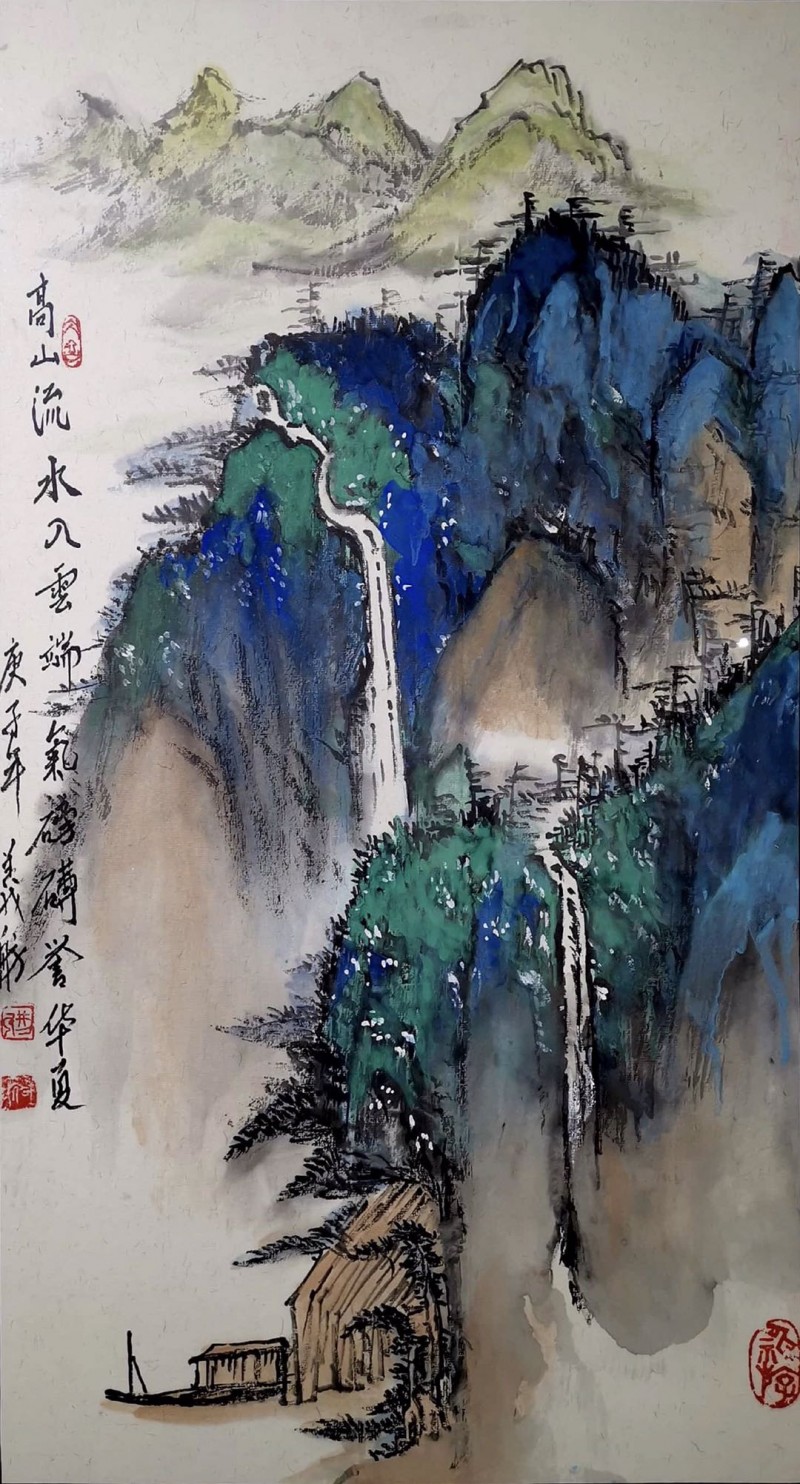 高山流水入雲端氣磅礡誉华夏
庚子年